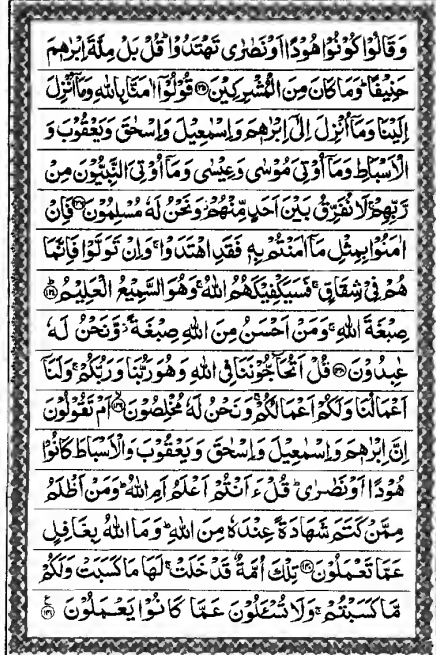 وَقَالُوْا كُوْنُوْا هُوْدًا اَوْ نَصٰرٰى تَهْتَدُوْا ؕ قُلْ بَلْ مِلَّةَ اِبْرٰهٖمَ
حَنِيْفًا ؕ وَمَا كَانَ مِنَ الْمُشْرِكِيْنَ ۝۱۳۵ قُوْلُوْۤا اٰمَنَّا بِاللّٰهِ وَمَاۤ اُنْزِلَ
اِلَيْنَا وَمَاۤ اُنْزِلَ اِلٰۤى اِبْرٰهٖمَ وَاِسْمٰعِيْلَ وَاِسْحٰقَ وَيَعْقُوْبَ وَ
الْاَسْبَاطِ وَمَاۤ اُوْتِيَ مُوْسٰى وَعِيْسٰى وَمَاۤ اُوْتِيَ النَّبِيُّوْنَ مِنْ
رَّبِّهِمْ ۚ لَا نُفَرِّقُ بَيْنَ اَحَدٍ مِّنْهُمْ ۖ وَنَحْنُ لَهٗ مُسْلِمُوْنَ ۝۱۳۶ فَاِنْ
اٰمَنُوْا بِمِثْلِ مَاۤ اٰمَنْتُمْ بِهٖ فَقَدِ اهْتَدَوْا ۚ وَاِنْ تَوَلَّوْا فَاِنَّمَا
هُمْ فِيْ شِقَاقٍ ۚ فَسَيَكْفِيْكَهُمُ اللّٰهُ ۚ وَهُوَ السَّمِيْعُ الْعَلِيْمُ ۝۱۳۷
صِبْغَةَ اللّٰهِ ۚ وَمَنْ اَحْسَنُ مِنَ اللّٰهِ صِبْغَةً ؗ وَّنَحْنُ لَهٗ
عٰبِدُوْنَ ۝۱۳۸ قُلْ اَتُحَآجُّوْنَنَا فِي اللّٰهِ وَهُوَ رَبُّنَا وَرَبُّكُمْ ۚ وَلَنَاۤ
اَعْمَالُنَا وَلَكُمْ اَعْمَالُكُمْ ۚ وَنَحْنُ لَهٗ مُخْلِصُوْنَ ۝۱۳۹ اَمْ تَقُوْلُوْنَ
اِنَّ اِبْرٰهٖمَ وَاِسْمٰعِيْلَ وَاِسْحٰقَ وَيَعْقُوْبَ وَالْاَسْبَاطَ كَانُوْا
هُوْدًا اَوْ نَصٰرٰى ؕ قُلْ ءَاَنْتُمْ اَعْلَمُ اَمِ اللّٰهُ ؕ وَمَنْ اَظْلَمُ
مِمَّنْ كَتَمَ شَهَادَةً عِنْدَهٗ مِنَ اللّٰهِ ؕ وَمَا اللّٰهُ بِغَافِلٍ
عَمَّا تَعْمَلُوْنَ ۝۱۴۰ تِلْكَ اُمَّةٌ قَدْ خَلَتْ ۚ لَهَا مَا كَسَبَتْ وَلَكُمْ
مَّا كَسَبْتُمْ ۚ وَلَا تُسْئَلُوْنَ عَمَّا كَانُوْا يَعْمَلُوْنَ ۝۱۴۱ ع